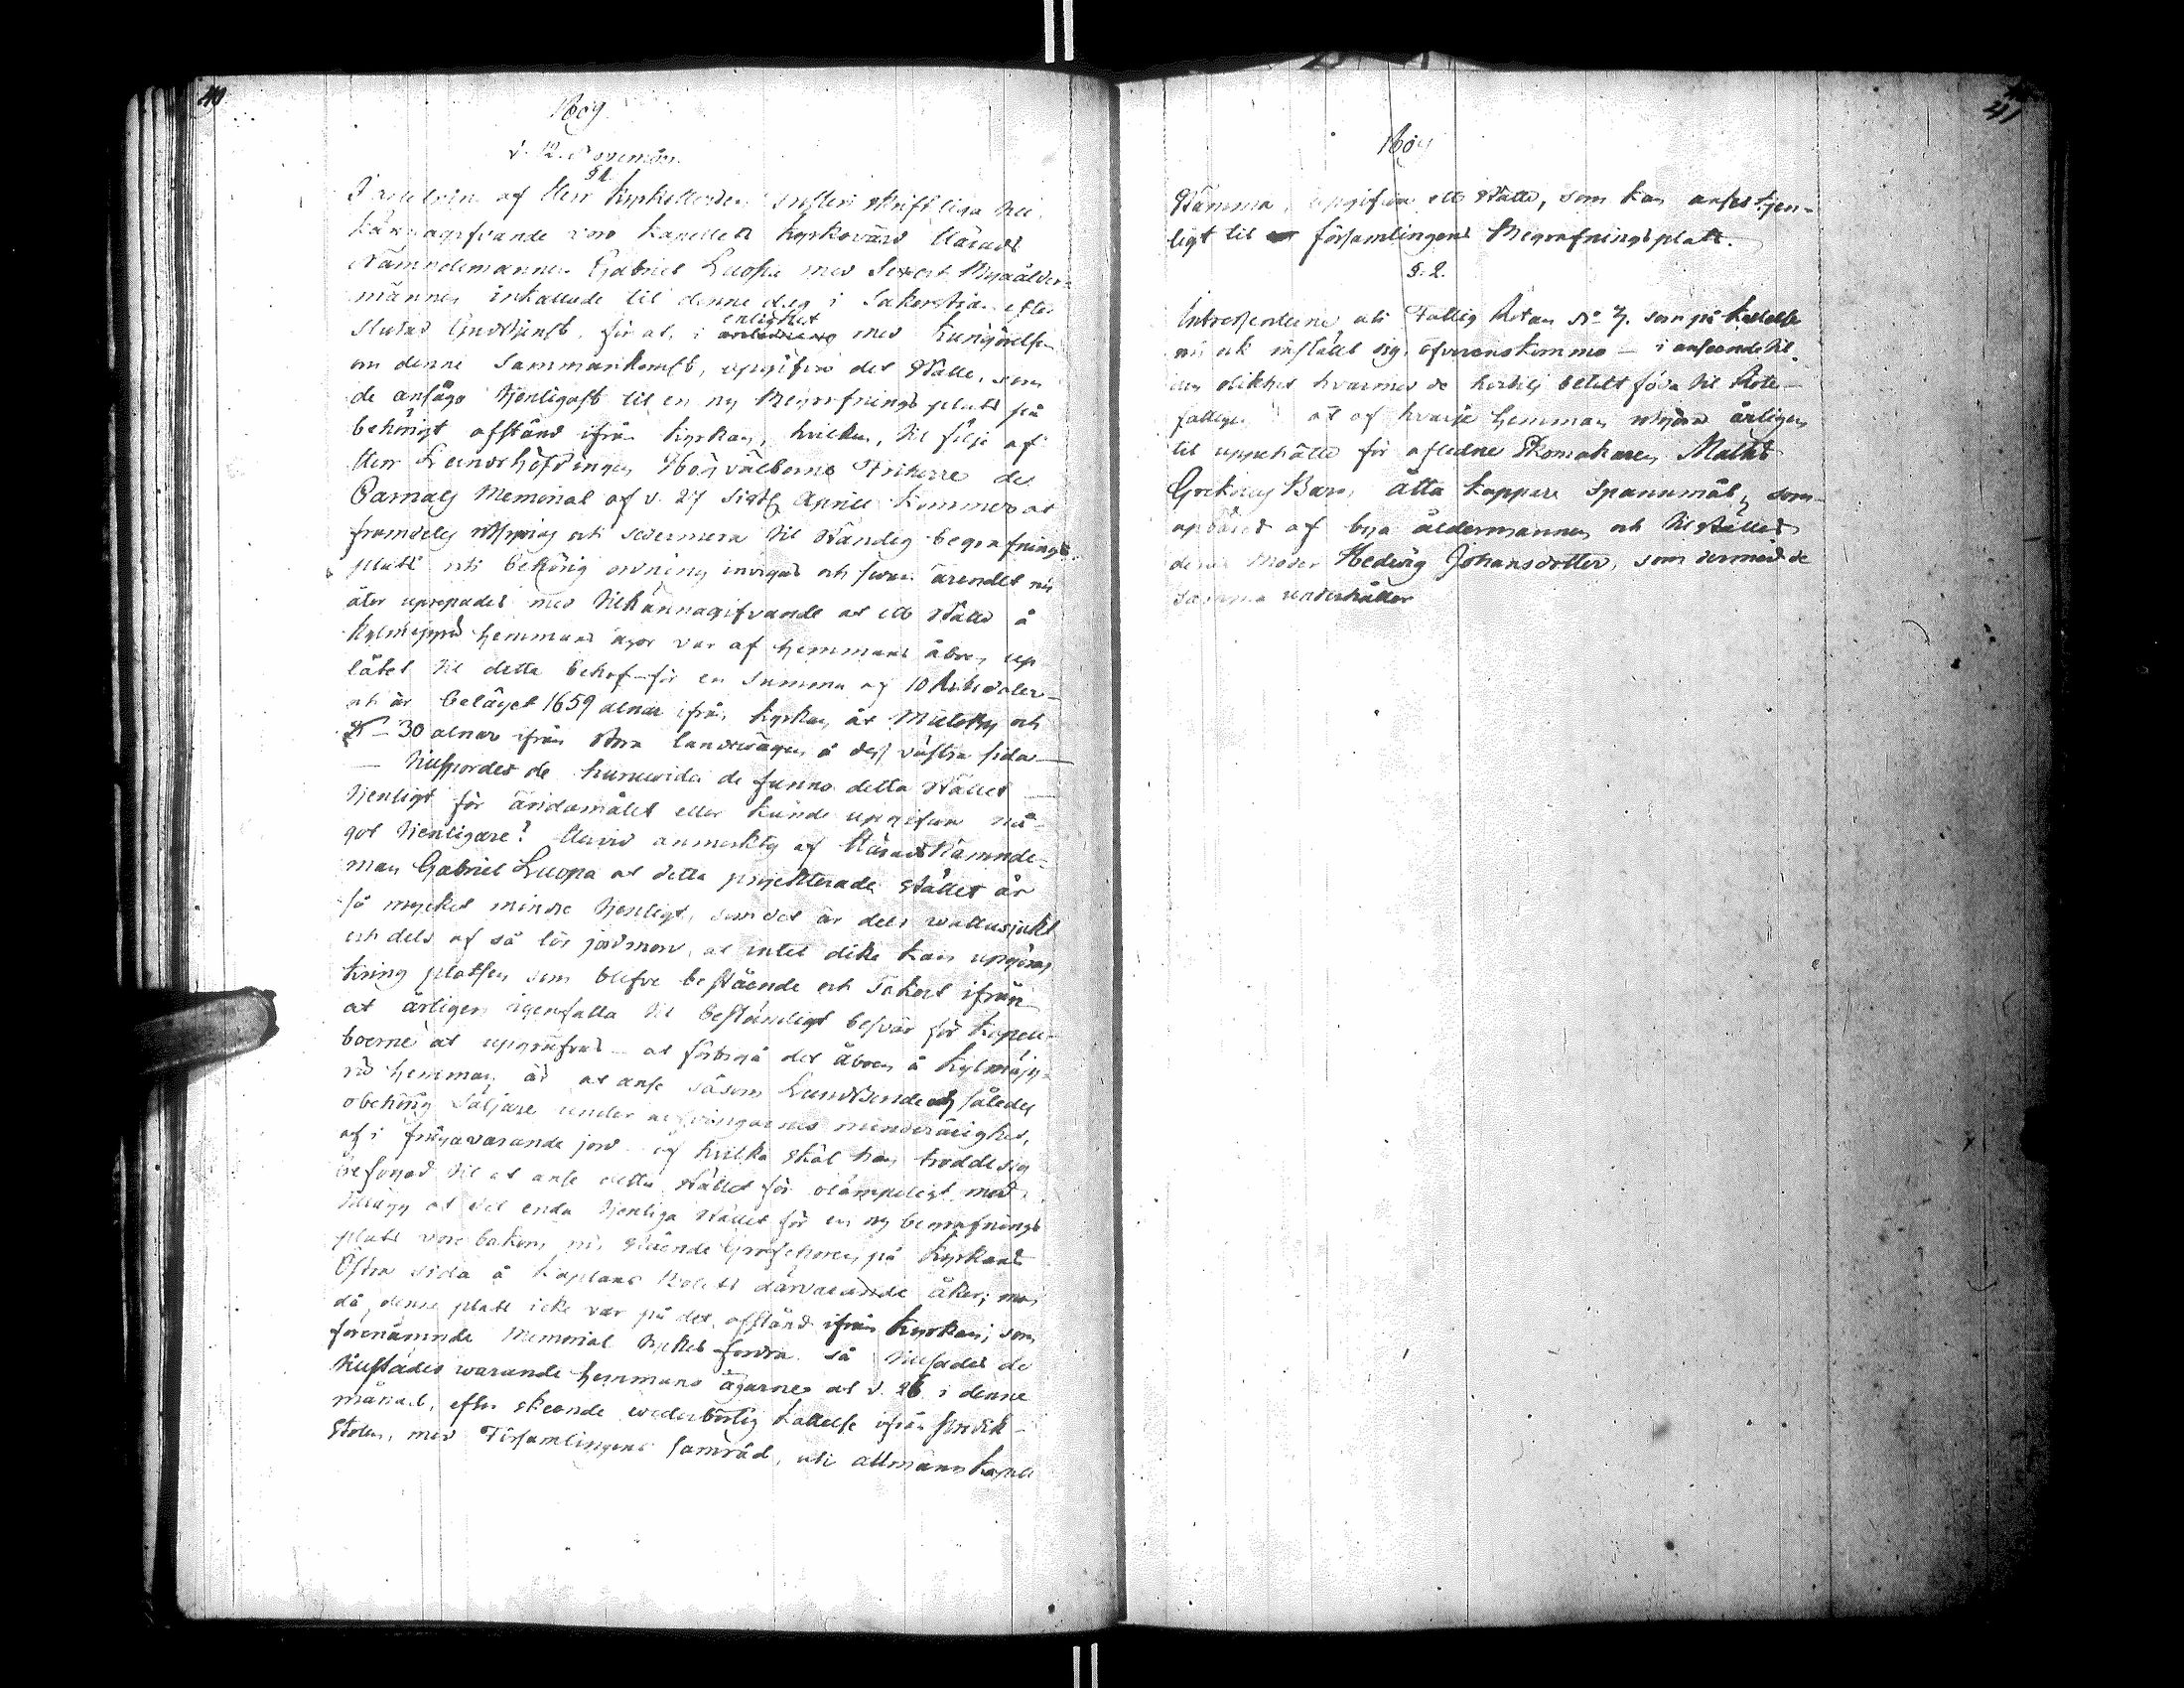 40
1809
d. 12. Novembr.
§ 1.
af Herr Kyrkoherden skriftliga til-
kännagifvande voro Kapellets Kyrkovärd Härads
Nämndemannen Gabriel Luopa med Sexort Byaålder-
männen inkallade til denne dag i Sakerstian efter
slutad Gudstjenst, för at, i anledning enlighet med Kungörelsen
om denne Sammankomst, upgifva det Ställe, som
de ansågo tjenligast til en ny Begrafnings plats på
behörigt afstånd ifrån Kyrkan, hvilken, til följe af
Herr Landshöfdingen Högvälborne Friherre de
Carnalls Memorial af d. 27 sistl. April kommer at
framdeles och sedermera til ständig begrafnings
plats uti behörig ordning invigas och ärendet nu
åter upropades med tilkännagifvande at ett Ställe å
hemmans ägor var af hemmans åboen up-
låtet til detta behof för en Summa af 10 Riksdaler
och är belägat 1659 alnar ifrån Kyrkan åt och
30 alnar ifrån stora landsvägen å dess västra sida
— Tilspordes de huruvida de funno detta Stället
tjenligt för ändamålet eller kunde upgifva nå-
got tjenligare? Härvid anmerktes af Härads Nämnde-
man Gabriel Luopa at detta projekterade Stället är
så mycket mindre tjenligt, som det är dels wattusjukt
och dels af så lös jordmon, at intet dike kan upgöras
kring platsen som blefve bestående och säkert ifrån
at årligen igenfalla til beständigt besvär för Kapell-
boerne at upgräfvas — at förbigå det åboen å
hemman, är at anse såsom Landbonde och således
obehörig Säljare under arfvingarnes minderårighet,
af i frågavarande jord — af hvilka skäl han trodde sig
befogad til at anse detta Stället för olämpeligt med
tillägg at det enda tjenliga Stället för en ny begrafnings
plats vore bakom nu stående på Kyrkans
Östra sida å Kaplans Bolets därvarande åker; men
då denne plats icke var på det afstånd ifrån Kyrkan, som
förenämnde Memorial fordra så tilsades de
tilstädes warande hemmans ägarne at d. 26 i denne
månad, efter skeende wederbörlig Kallelse ifrån Predik-
stolen, med Församlingens samråd, uti allmänn Kapell
41
1809
Stämma, upgifva ett Ställe, som kan anses tjen-
ligt til församlingens Begrafningsplats.
§. 2.
Intressenterne uti Fattig Rotan No 7. som på kallelse
nu ock inställt sig, öfverenskommo — i anseende til
den olikhet hvarmed de hertils betalt föda til Rote-
fattigen at af hvarje hemman årligen
til uppehälle för afledne Skomakaren Matts
Barn, åtta kappar Spannmål, som
upbäres af bya åldermannen och tilställes
deras Moder Hedvig Johansdotter, som dermed de
samma underhåller